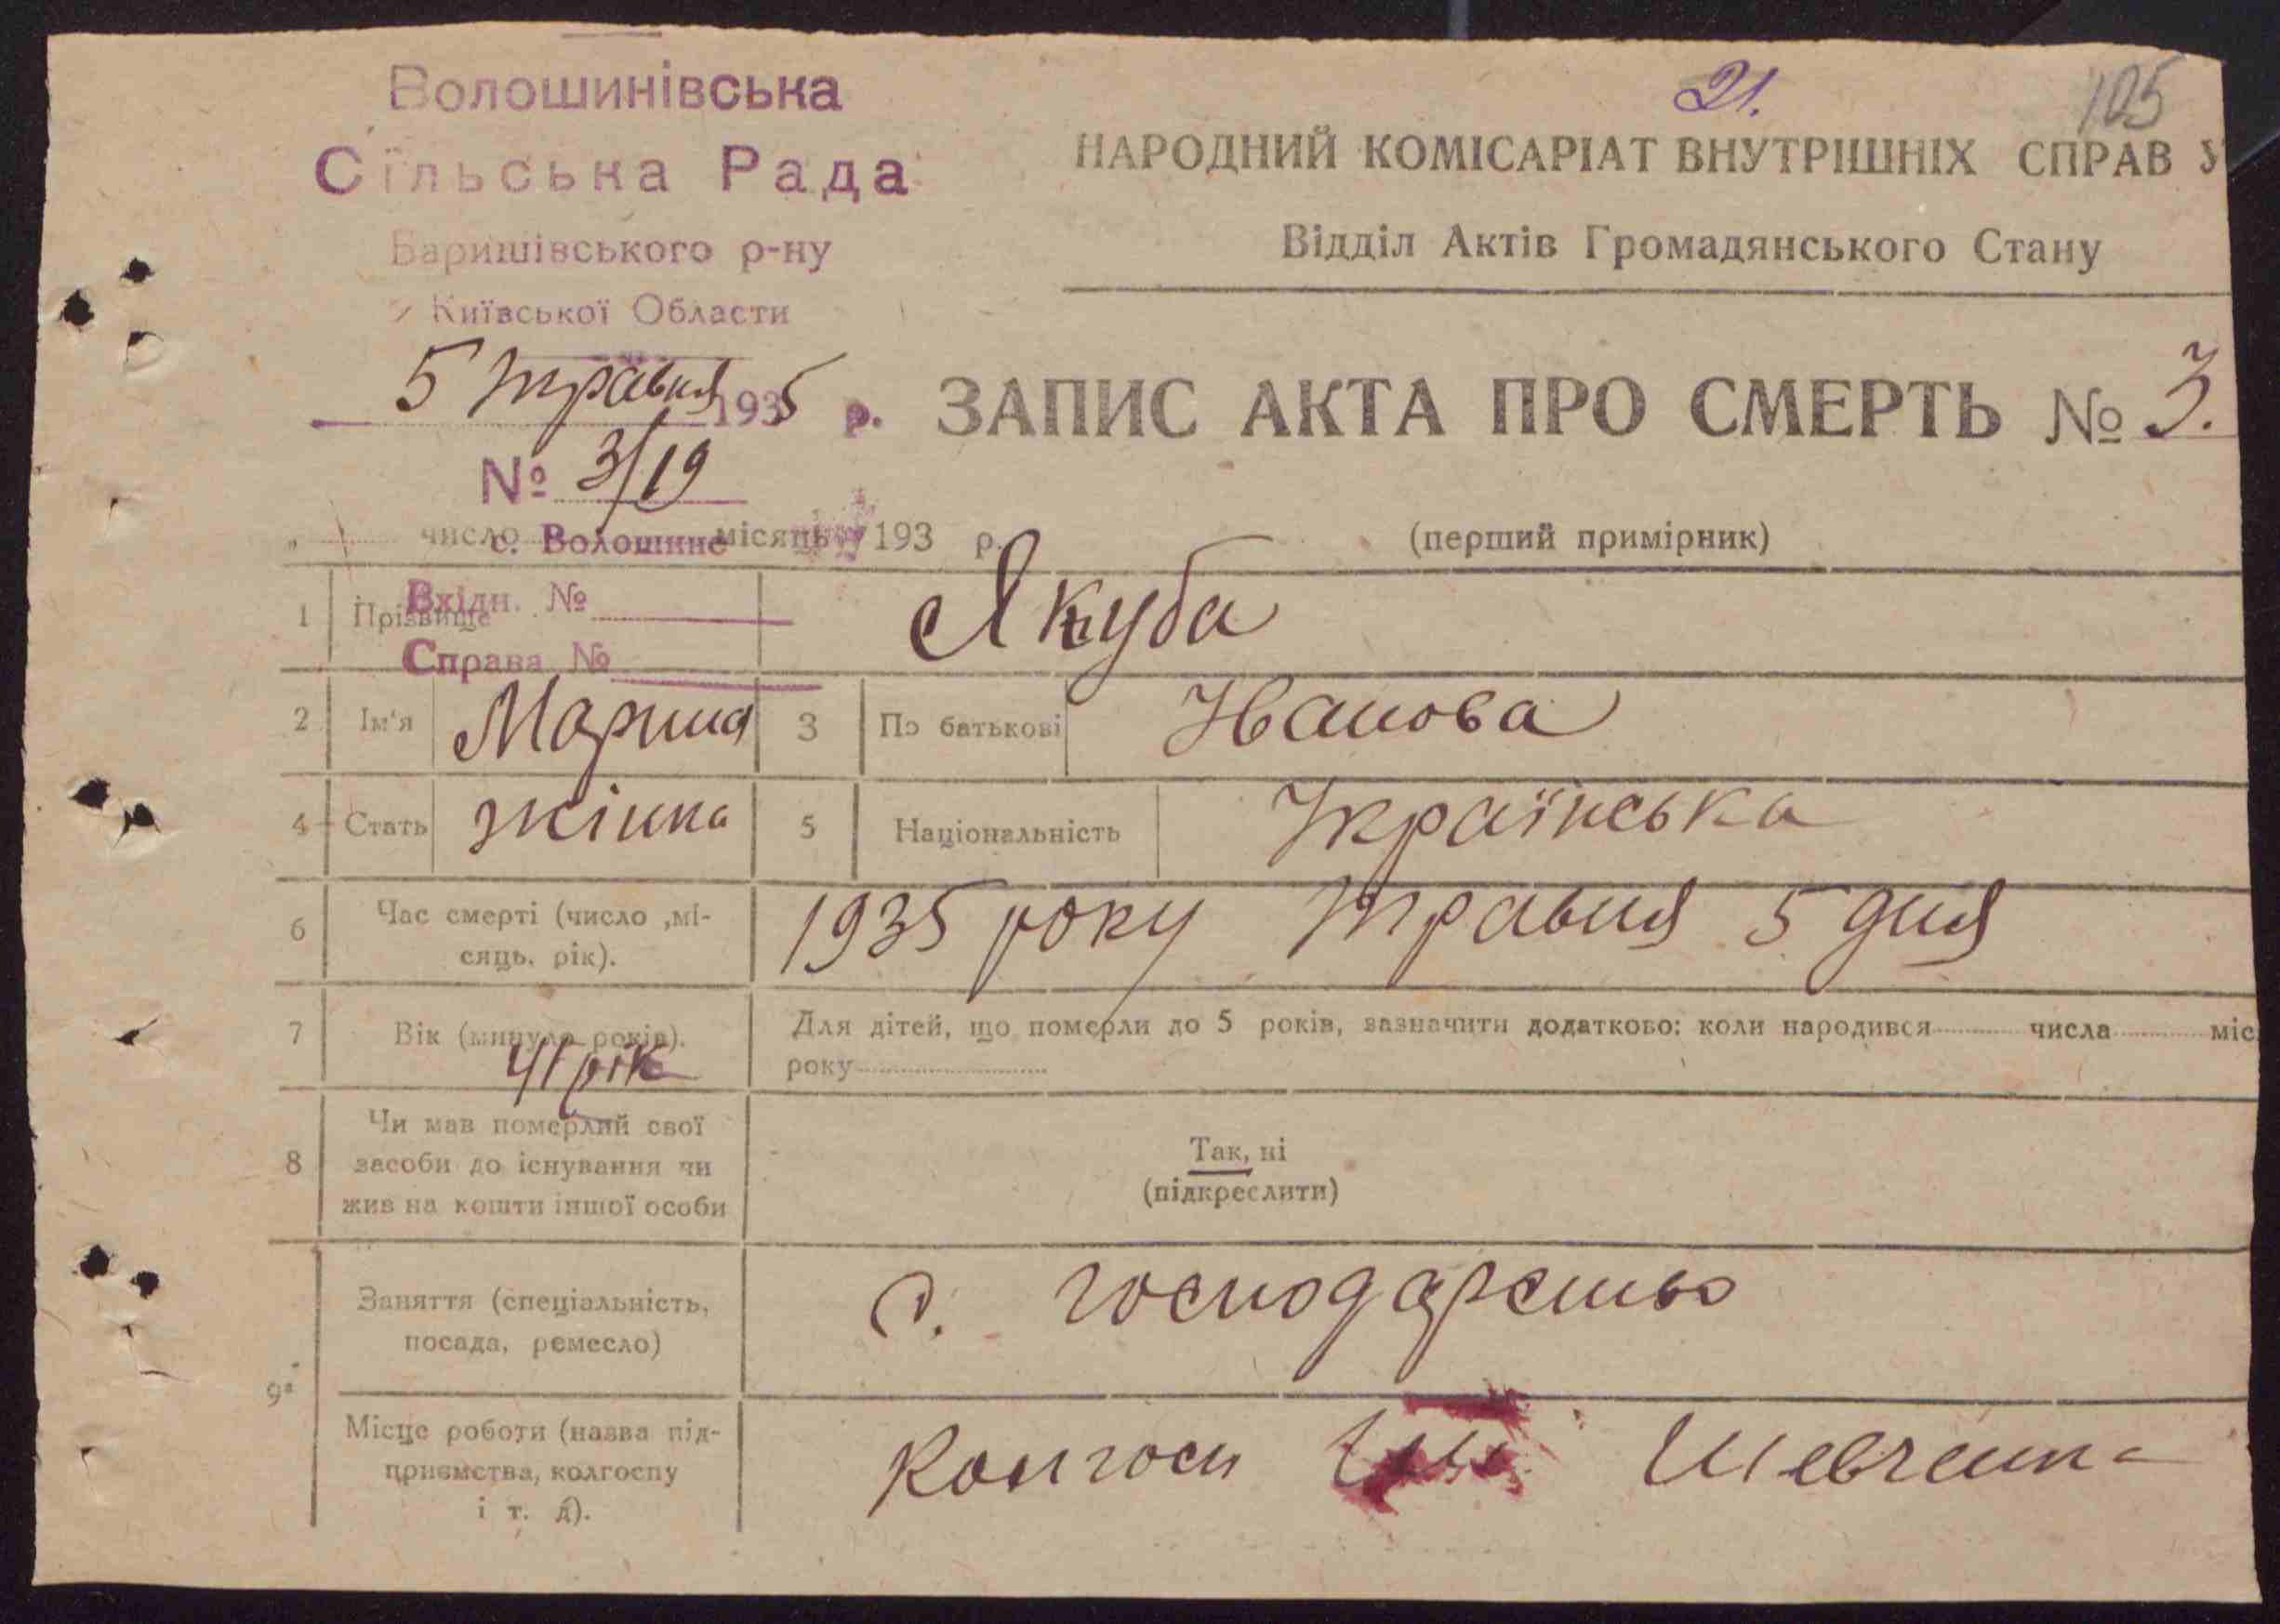 21.
105
Волошинівська
Сільська Рада
Баришівського р-ну
Київської Области
5 травня 1935 р.
№ 3/19
с. Волошине
Вхідн. №
Справа №
НАРОДНИЙ КОМІСАРІАТ ВНУТРІШНІХ СПРАВ У
Відділ Актів Громадянського Стану
ЗАПИС АКТА ПРО СМЕРТЬ № 3.
число місяць 193 р.
(перший примірник)
1 Прізвище Якуба
2 Ім'я Марина 3 По батькові Иванова
4 Стать жінка 5 Національність Українська
6 Час смерті (число ,мі-
сяць, рік). 1935 року травня 5 дня
7 Вік (минуло років). 41 рік
Для дітей, що померли до 5 років, зазначити додатково: коли народився числа міс
року
8 Чи мав померлий свої
засоби до існування чи
жив на кошти іншої особи
Так, ні
(підкреслити)
9а Заняття (спеціальність,
посада, ремесло) С. господарство
Місце роботи (назва під-
приємства, колгоспу
і т. д). Колгосп Шевченка